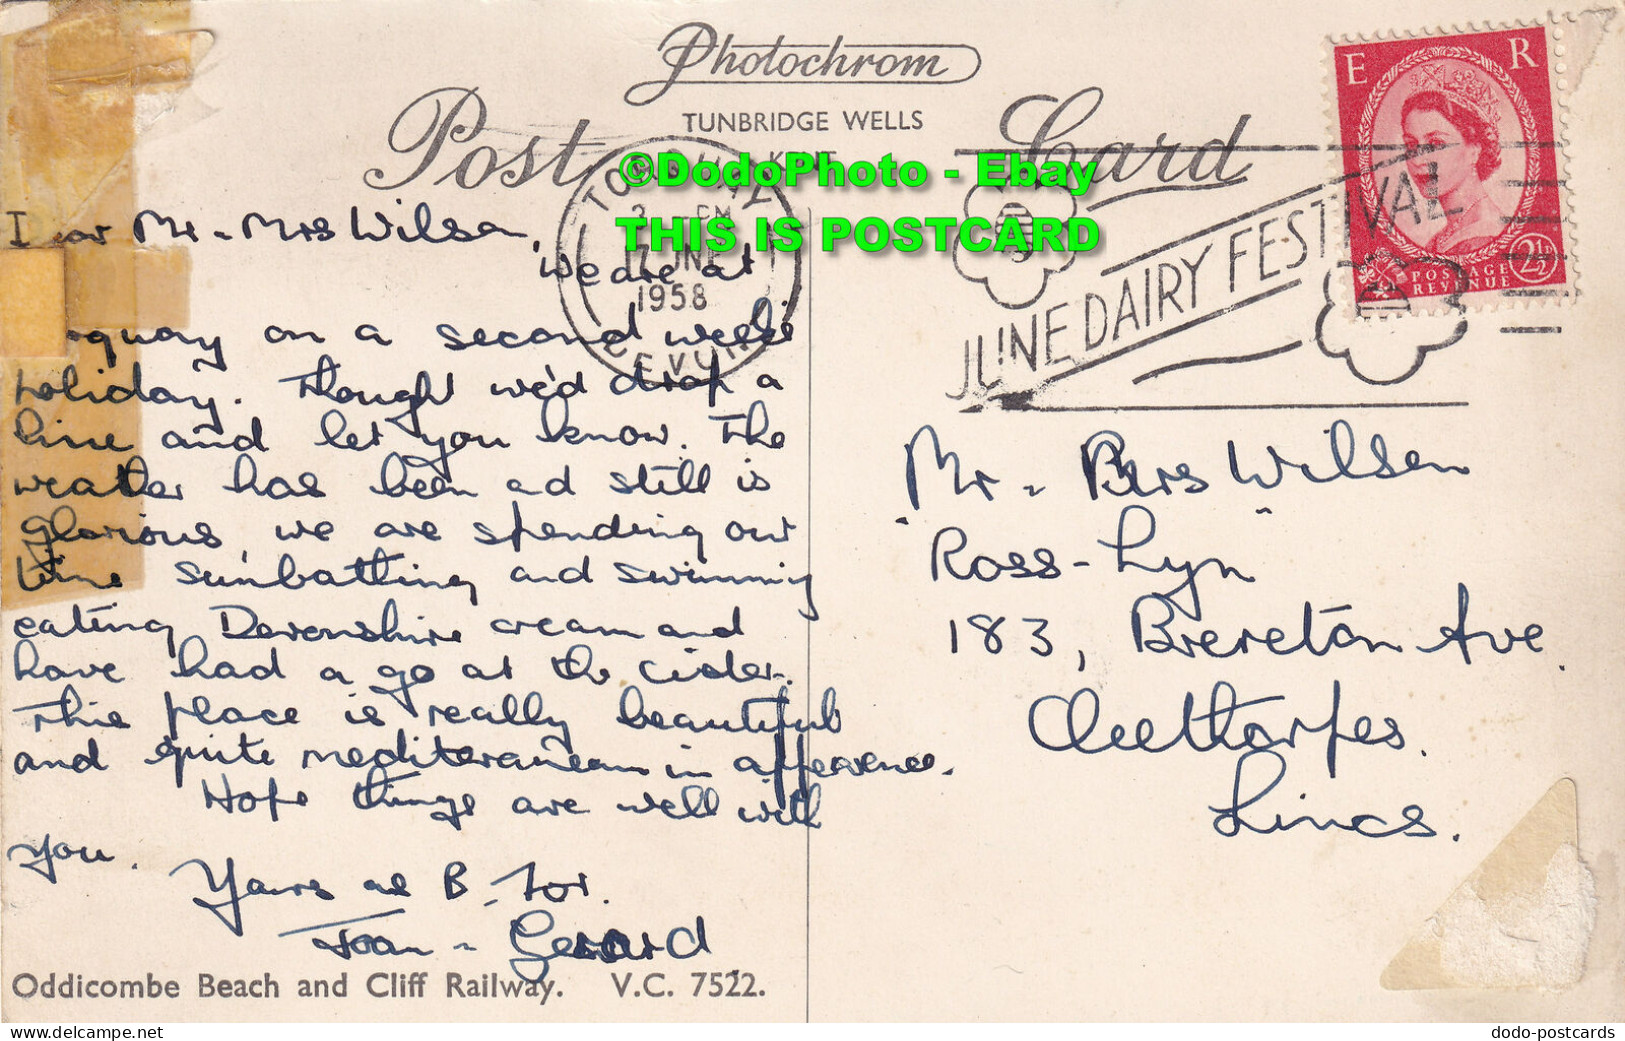 Photochrom
TUNBRIDGE WELLS
KENT
Post Card
©DodoPhoto - Ebay
THIS IS POSTCARD
TORQUAY
PM
JUNE
1958
DEVON
JUNE DAIRY FESTIVAL
E R
POSTAGE
REVENUE
2½D
Dear Mr. Mrs Wilson,
We are at
oquay on a second week
holiday. Thought we'd drop a
line and let you know. The
weather has been ad still is
glorious, we are spending our
time sunbathing and swimming
eating Devonshire cream and
have had a go at the cider.
This place is really beautiful
and quite mediteranean in appearence.
Hope things are well with
you.
Yours as B-for.
Joan - Gerard
Oddicombe Beach and Cliff Railway. V.C. 7522.
Mr. Mrs Wilson
"Ross-Lyn"
183, Brereton Ave.
Cleethorpes.
Lincs.
dodo-postcards